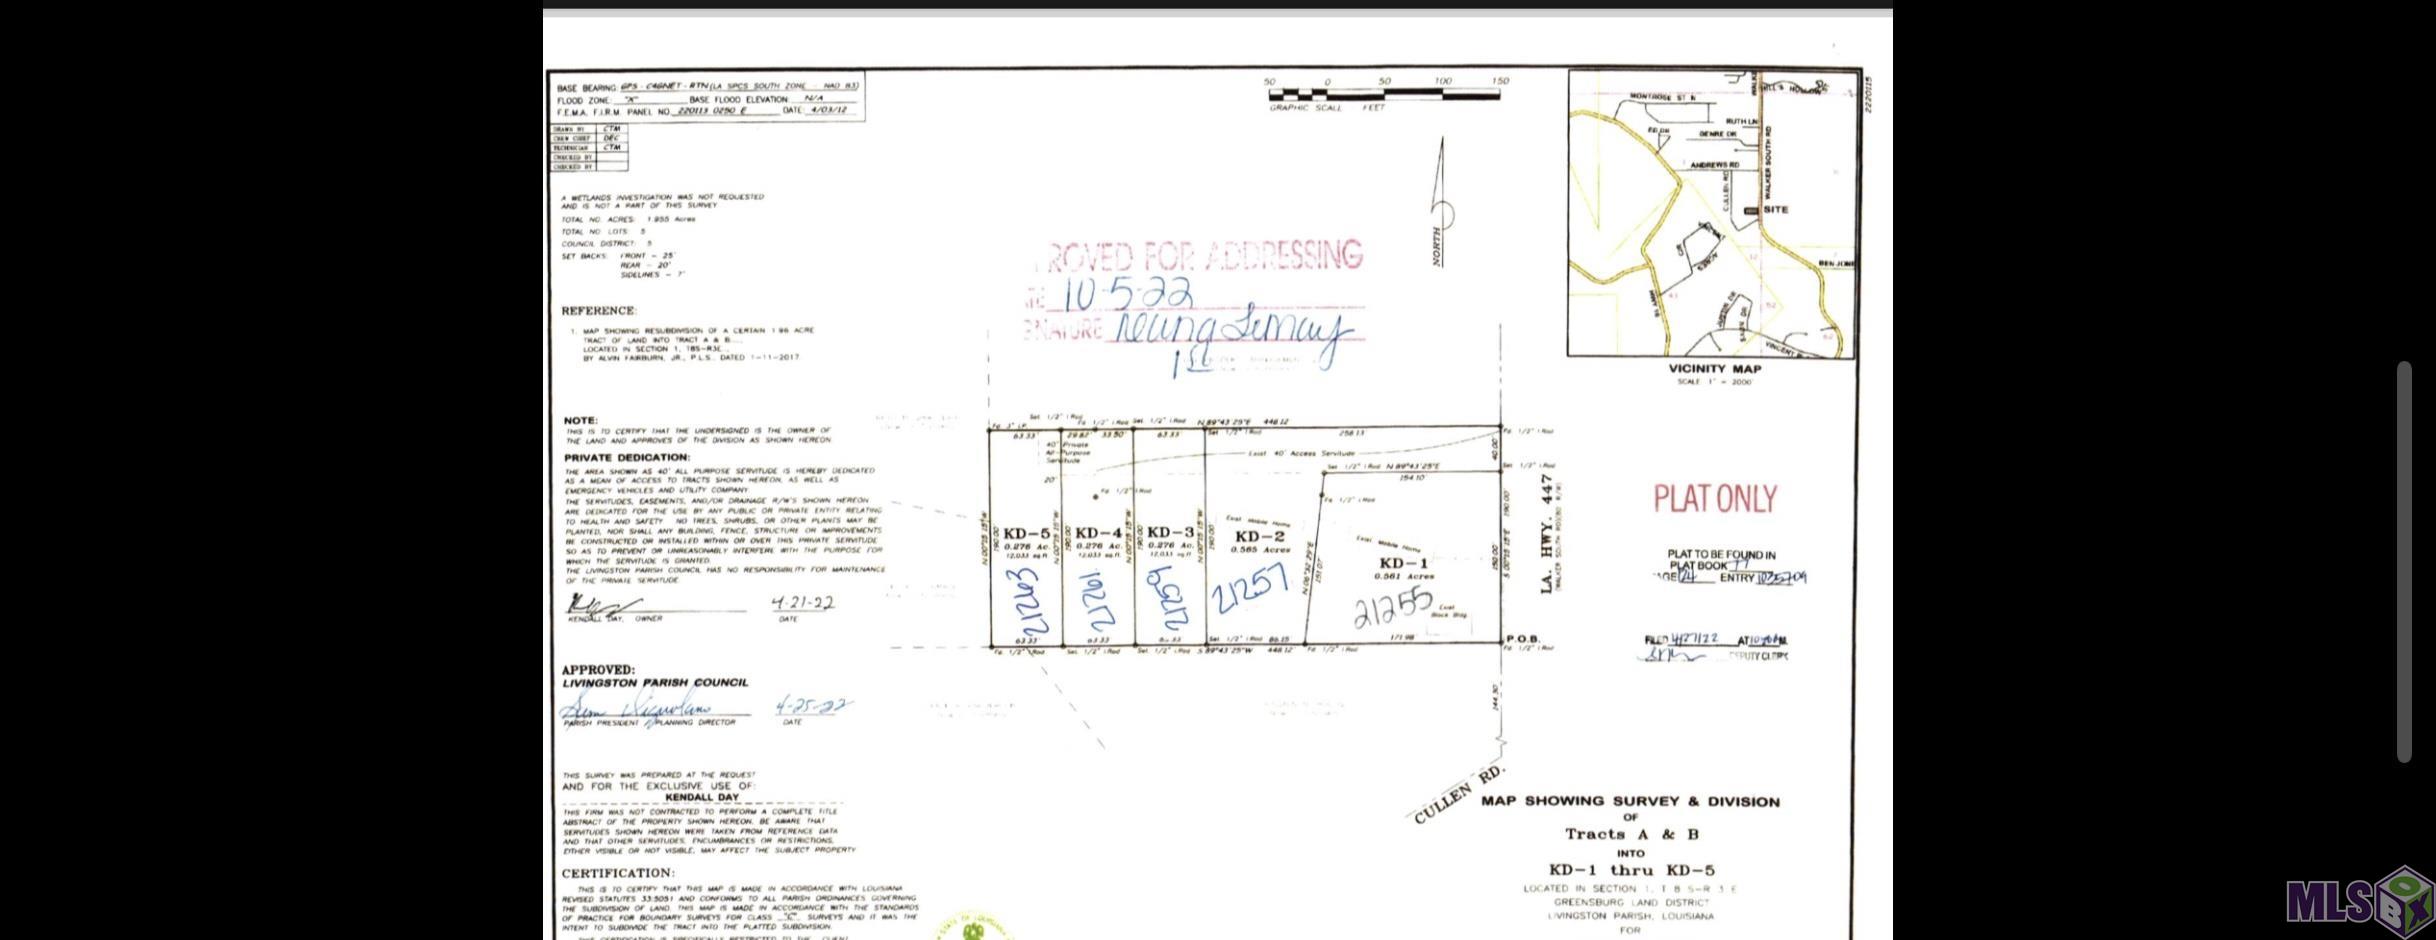 BASE BEARING: GPS - C4GNET - RTN (LA SPCS SOUTH ZONE - NAD 83)
FLOOD ZONE: "X" BASE FLOOD ELEVATION: N/A
F.E.M.A. F.I.R.M. PANEL NO. 220113 0250 E DATE: 4/03/12
DRAWN BY CTM
CREW CHIEF DEC
TECHNICIAN CTM
CHECKED BY
CHECKED BY
A WETLANDS INVESTIGATION WAS NOT REQUESTED
AND IS NOT A PART OF THIS SURVEY
TOTAL NO. ACRES: 1.955 Acres
TOTAL NO. LOTS: 5
COUNCIL DISTRICT: 5
SET BACKS: FRONT - 25'
REAR - 20'
SIDELINES - 7'
REFERENCE:
1. MAP SHOWING RESUBDIVISION OF A CERTAIN 1.96 ACRE
TRACT OF LAND INTO TRACT A & B...,
LOCATED IN SECTION 1, T8S-R3E...,
BY ALVIN FAIRBURN, JR., P.L.S., DATED 1-11-2017.
NOTE:
THIS IS TO CERTIFY THAT THE UNDERSIGNED IS THE OWNER OF
THE LAND AND APPROVES OF THE DIVISION AS SHOWN HEREON.
PRIVATE DEDICATION:
THE AREA SHOWN AS 40' ALL PURPOSE SERVITUDE IS HEREBY DEDICATED
AS A MEAN OF ACCESS TO TRACTS SHOWN HEREON, AS WELL AS
EMERGENCY VEHICLES AND UTILITY COMPANY.
THE SERVITUDES, EASEMENTS, AND/OR DRAINAGE R/W'S SHOWN HEREON
ARE DEDICATED FOR THE USE BY ANY PUBLIC OR PRIVATE ENTITY RELATING
TO HEALTH AND SAFETY. NO TREES, SHRUBS, OR OTHER PLANTS MAY BE
PLANTED, NOR SHALL ANY BUILDING, FENCE, STRUCTURE OR IMPROVEMENTS
BE CONSTRUCTED OR INSTALLED WITHIN OR OVER THIS PRIVATE SERVITUDE
SO AS TO PREVENT OR UNREASONABLY INTERFERE WITH THE PURPOSE FOR
WHICH THE SERVITUDE IS GRANTED.
THE LIVINGSTON PARISH COUNCIL HAS NO RESPONSIBILITY FOR MAINTENANCE
OF THE PRIVATE SERVITUDE.
4-21-22
KENDALL DAY, OWNER DATE
APPROVED:
LIVINGSTON PARISH COUNCIL
4-25-22
PARISH PRESIDENT / PLANNING DIRECTOR DATE
THIS SURVEY WAS PREPARED AT THE REQUEST
AND FOR THE EXCLUSIVE USE OF:
KENDALL DAY
THIS FIRM WAS NOT CONTRACTED TO PERFORM A COMPLETE TITLE
ABSTRACT OF THE PROPERTY SHOWN HEREON. BE AWARE THAT
SERVITUDES SHOWN HEREON WERE TAKEN FROM REFERENCE DATA
AND THAT OTHER SERVITUDES, ENCUMBRANCES OR RESTRICTIONS,
EITHER VISIBLE OR NOT VISIBLE, MAY AFFECT THE SUBJECT PROPERTY
CERTIFICATION:
THIS IS TO CERTIFY THAT THIS MAP IS MADE IN ACCORDANCE WITH LOUISIANA
REVISED STATUTES 33:5051 AND CONFORMS TO ALL PARISH ORDINANCES GOVERNING
THE SUBDIVISION OF LAND. THIS MAP IS MADE IN ACCORDANCE WITH THE STANDARDS
OF PRACTICE FOR BOUNDARY SURVEYS FOR CLASS "C" SURVEYS AND IT WAS THE
INTENT TO SUBDIVIDE THE TRACT INTO THE PLATTED SUBDIVISION.
50 0 50 100 150
GRAPHIC SCALE FEET
NORTH
ROVED FOR ADDRESSING
10-5-22
NATURE
MONTROSE ST N
RUTH LN
GENRE DR
ANDREWS RD
CULLEN RD
WALKER SOUTH RD
SITE
BEN JONE
HWY 16
VICINITY MAP
SCALE: 1" = 2000'
2220115
Set 1/2" I.Rod
Fd. 3" I.P. Fd. 1/2" I.Rod Set 1/2" I.Rod N 89°43'25"E 448.12'
63.33' 29.82' 33.50' 63.33' Set 1/2" I.Rod 258.13' Fd. 1/2" I.Rod
40' Private
All-Purpose
Servitude
Exist. 40' Access Servitude
40.00'
Set 1/2" I.Rod N 89°43'25"E Set 1/2" I.Rod
154.10'
20'
Fd. 1/2" I.Rod
Fd. 1/2" I.Rod
N 00°15'15"W 190.00'
KD-5
0.276 Ac.
12,033 sq.ft.
21263
KD-4
0.276 Ac.
12,033 sq.ft.
21261
KD-3
0.276 Ac.
12,033 sq.ft.
21259
Exist. Mobile Home
KD-2
0.565 Acres
21257
N 06°32'29"E 151.07'
Exist. Mobile Home
KD-1
0.561 Acres
21255
Exist.
Block Bldg.
150.00'
S 00°15'15"E 190.00'
LA. HWY. 447
63.33' 63.33' 63.33' Set 1/2" I.Rod 86.15' 171.98' P.O.B.
Fd. 1/2" I.Rod Set 1/2" I.Rod Set 1/2" I.Rod S 89°43'25"W 448.12' Fd. 1/2" I.Rod Fd. 1/2" I.Rod
144.30'
CULLEN RD.
PLAT ONLY
PLAT TO BE FOUND IN
PLAT BOOK
ENTRY 1035709
FILED 4/27/22 AT
DEPUTY CLERK
MAP SHOWING SURVEY & DIVISION
OF
Tracts A & B
INTO
KD-1 thru KD-5
LOCATED IN SECTION 1, T 8 S-R 3 E
GREENSBURG LAND DISTRICT
LIVINGSTON PARISH, LOUISIANA
FOR
MLSBOX